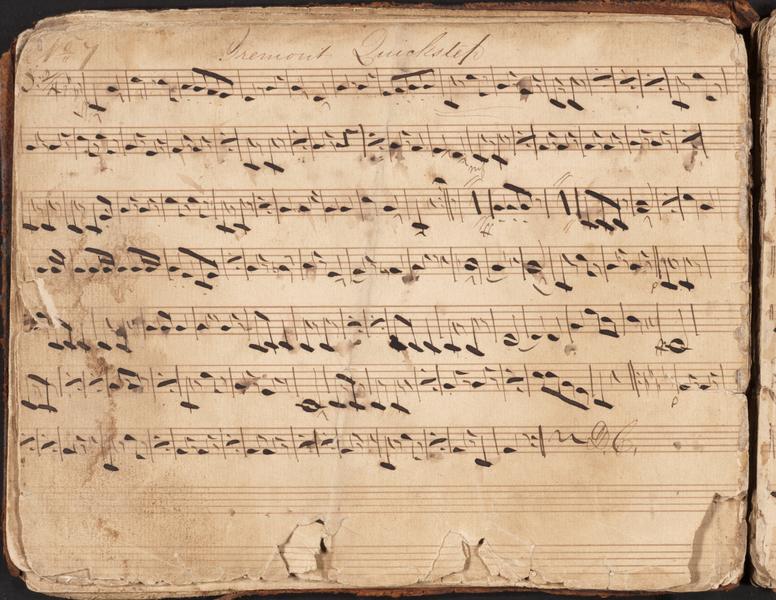 No 7 Tremont Quickstep
ff
p
p